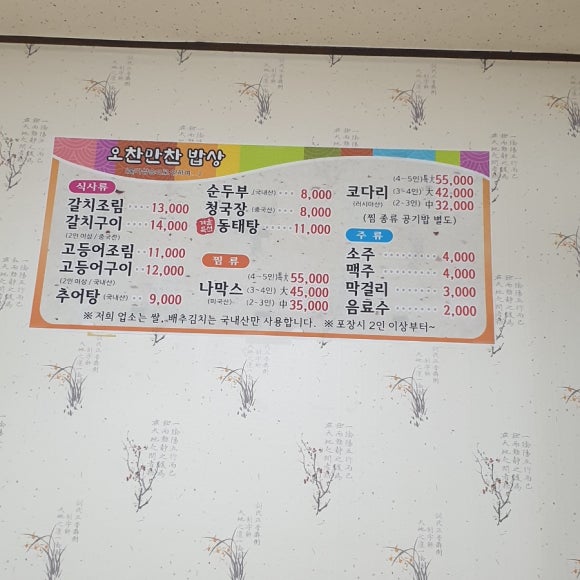 오찬만찬 밥상
식사류
갈치조림 ····· 13,000
갈치구이 ···· 14,000
(2인 이상 / 중국산)
고등어조림 ·· 11,000
고등어구이 ·· 12,000
(2인 이상 / 국내산)
추어탕 (국내산) ·· 9,000
순두부 (국내산) ···· 8,000
청국장 (중국산) ···· 8,000
동태탕 ···· 11,000
찜 류
(4~5인) 特大 55,000
나막스 (3~4인) 大 45,000
(미국산) (2~3인) 中 35,000
(4~5인) 特大 55,000
코다리 (3~4인) 大 42,000
(러시아산) (2~3인) 中 32,000
(찜 종류 공기밥 별도)
주 류
소주 ········ 4,000
맥주 ········ 4,000
막걸리 ····· 3,000
음료수 ····· 2,000
※ 저희 업소는 쌀, 배추김치는 국내산만 사용합니다. ※ 포장시 2인 이상부터~